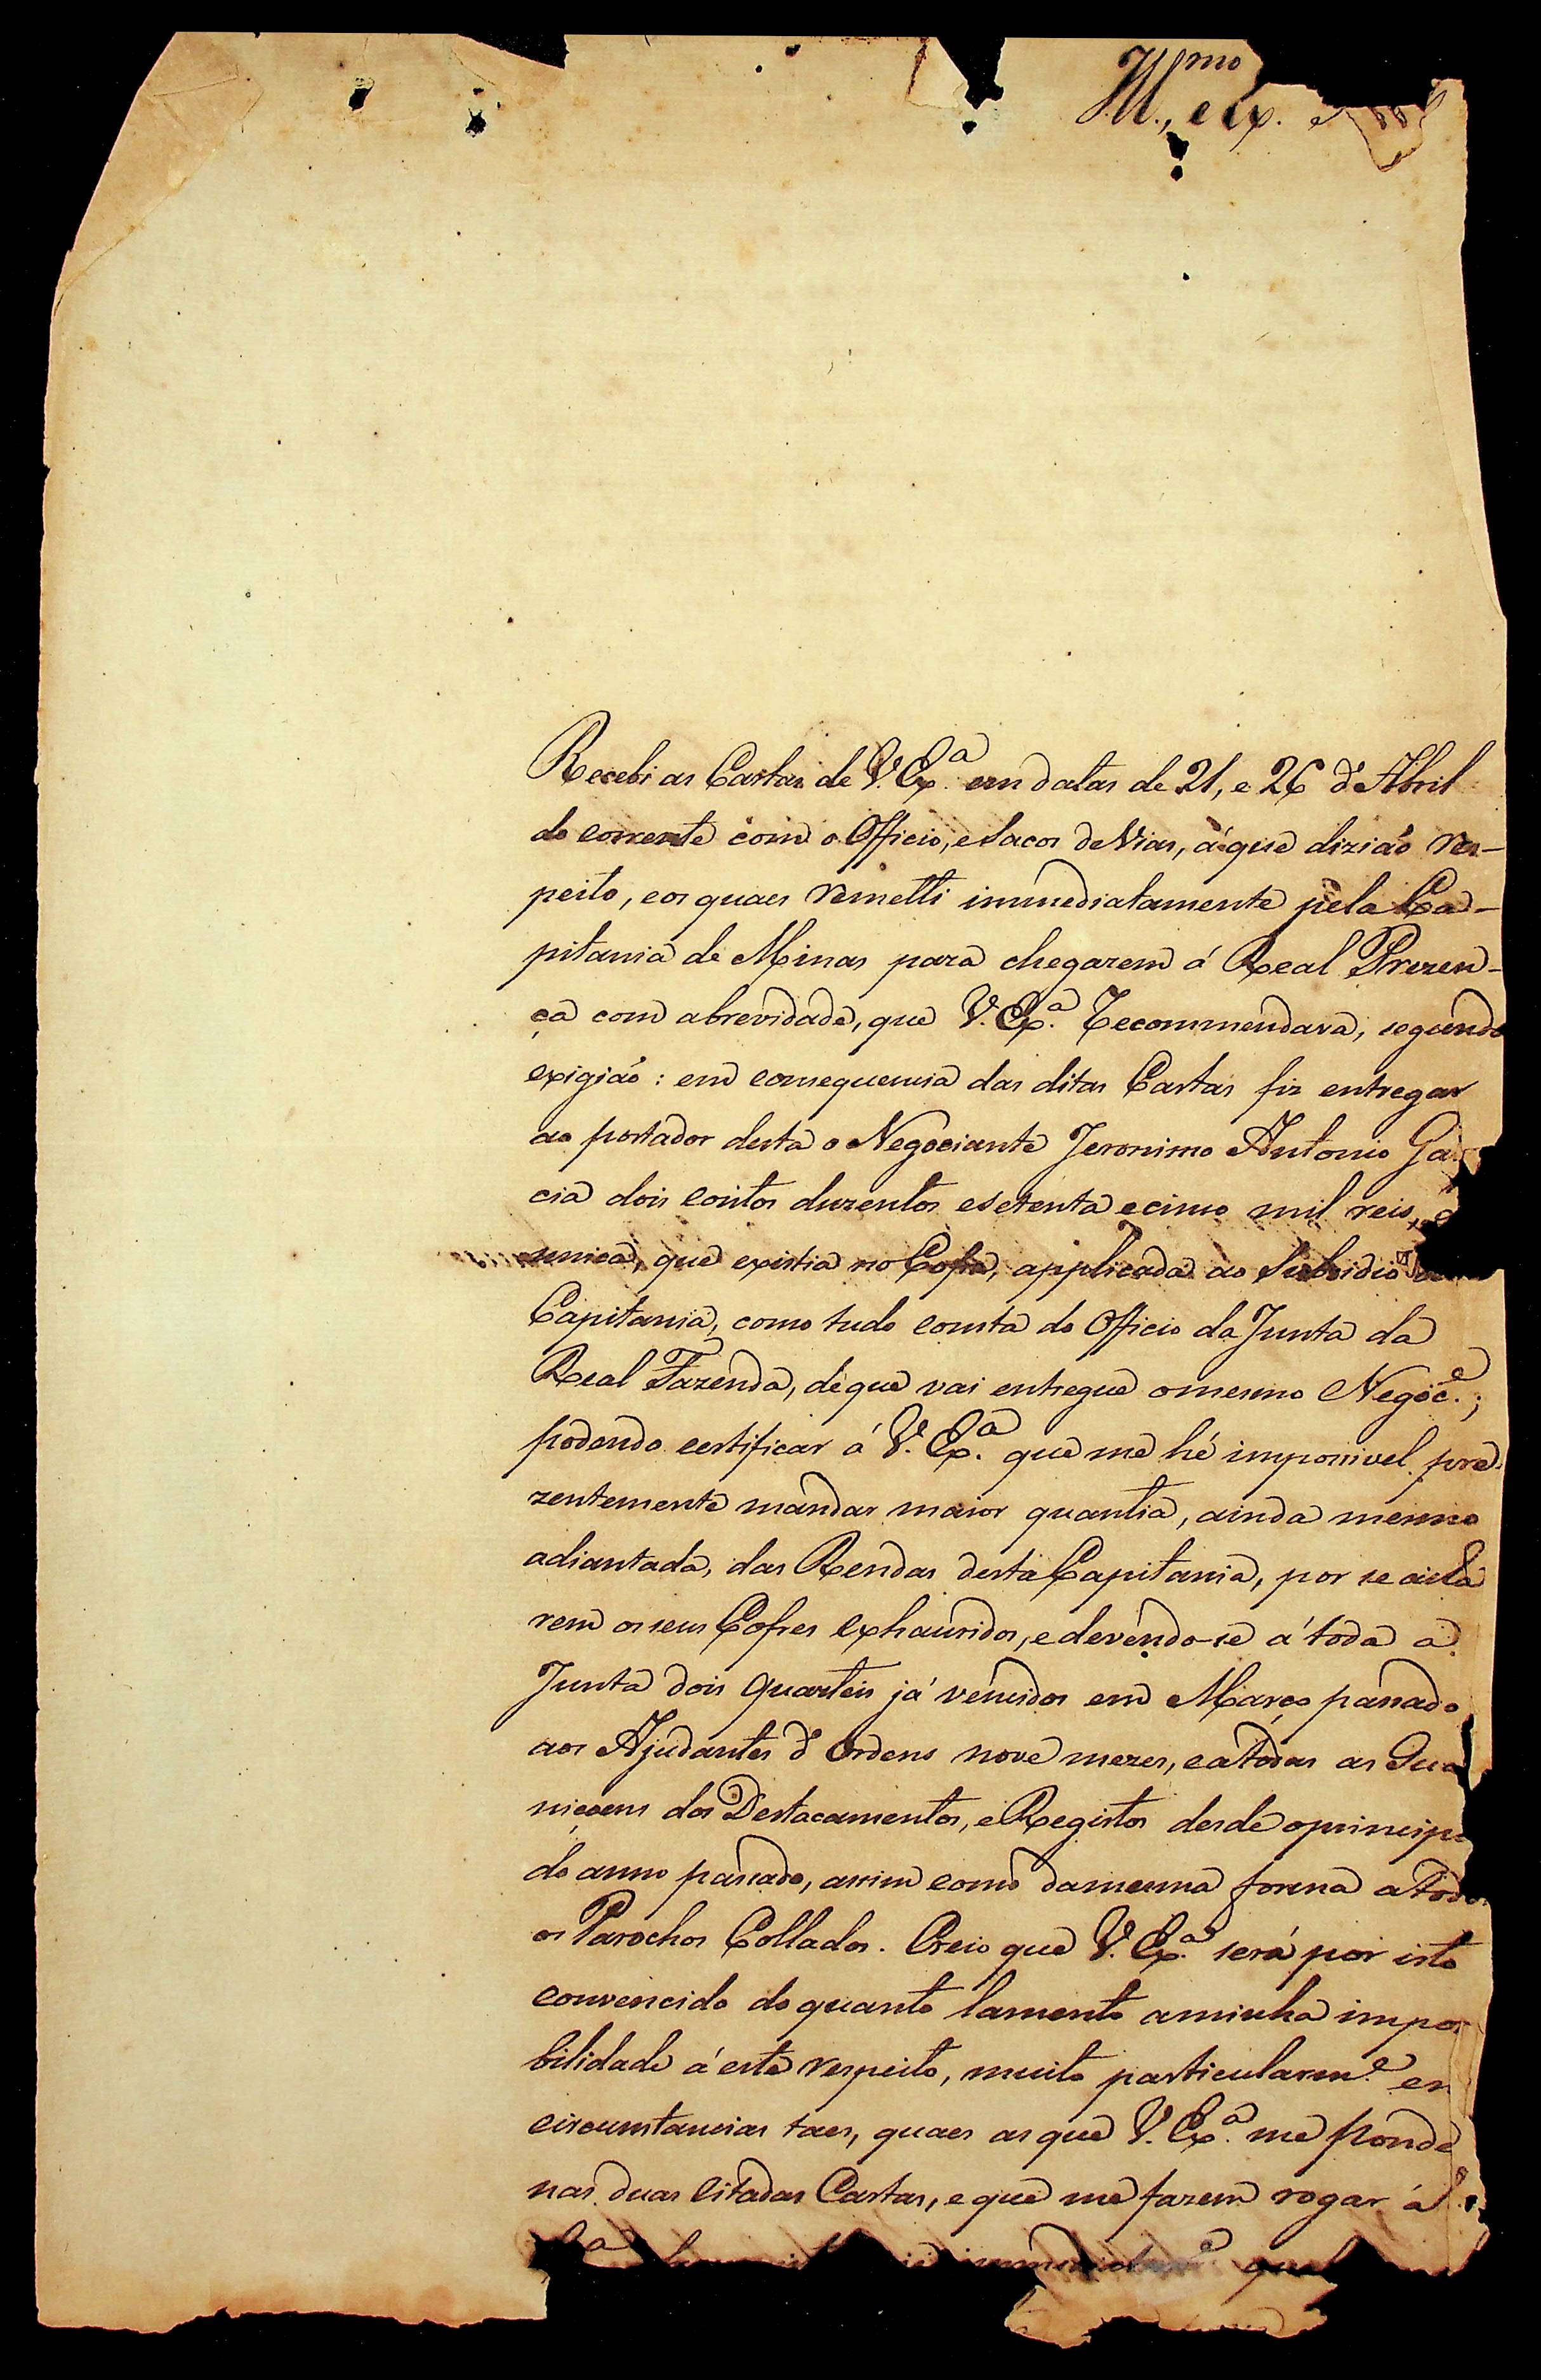 Ill.mo, e Ex.
Recebi as Cartas de V. Ex.a em datas de 21, e 26 d'Abril
do corrente com o Officio, e Sacos de Vias, á que dizião res-
peito, e os quaes remetti immediatamente pela Ca-
pitania de Minas para chegarem á Real Prezen-
ça com abrevidade, que V. Ex.a Recommendava, segundo
exigião: em consequencia das ditas Cartas fiz entregar
ao portador desta o Negociante Jeronimo Antonio Gar
cia dois contos duzentos e setenta e cinco mil reis,
unica, que existia no Cofre, applicada ao Subsidio
Capitania, como tudo consta do Officio da Junta da
Real Fazenda, de que vai entregue o mesmo Negoc.e;
podendo certificar á V. Ex.a que me hé impossivel pre-
zentemente mandar maior quantia, ainda mesmo
adiantada, das Rendas desta Capitania, por se acha
rem os seus Cofres exhauridos, e devendo-se á toda a
Junta dois Quarteis já vencidos em Março passado
aos Ajudantes d'Ordens nove mezes, e a todas as Gua
niçoens dos Destacamentos, e Registos desde o princip
do anno passado, assim como da mesma forma a todos
os Parochos Collados. Creio que V. Ex.a será por isto
convencido do quanto lamento a minha impos
bilidade á este respeito, muito particularm.e em
circumstancias taes, quaes as que V. Ex.a me ponde
nas duas citadas Cartas, e que me fazem rogar á
immediatam.e